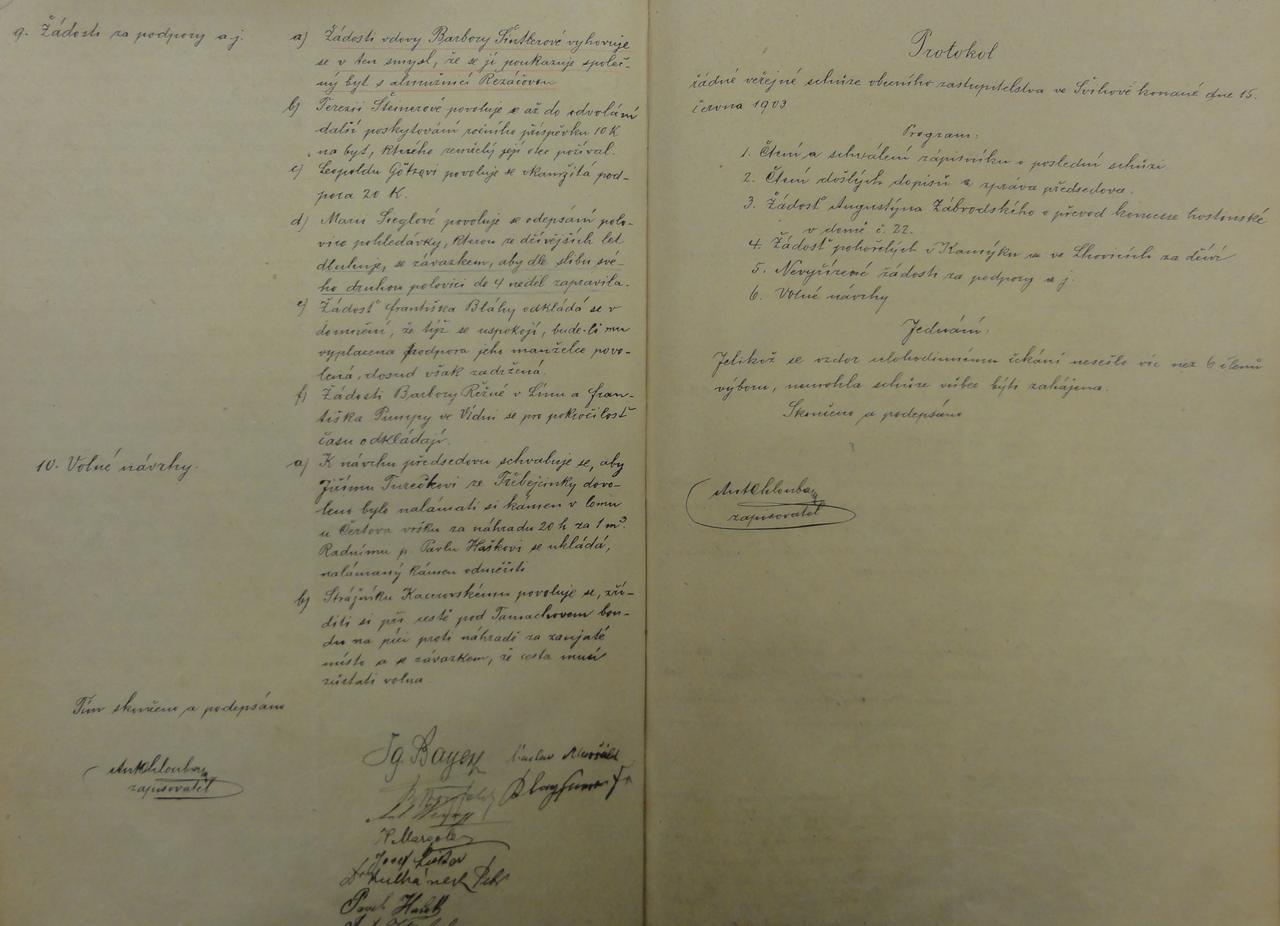 9. Žádosti za podpory a j.
a) Žádosti vdovy Barbory Šintlerové vyhovuje
se v ten smysl, že se jí poukazuje společ-
ný byt s almužnicí Rezáčovou
b) Terezii Šteinerové povoluje se až do odvolání
další poskytování ročního příspěvku 10 K
na byt, kterého zemřelý její otec požíval.
c) Leopoldu Götzovi povoluje se okamžitá pod-
pora 20 K.
d) Marii Sieglové povoluje se odepsání polo-
vice pohledávky, kterou ze dřívějších let
dluhuje, se závazkem, aby dle slibu své-
ho druhou polovici do 4 neděl zapravila.
e) Žádosť Františka Bláhy odkládá se v
domnění, že týž se uspokojí, bude-li mu
vyplacena podpora jeho manželce povo-
lená, dosud však zadržená.
f) Žádosti Barbory Režné v Linci a Fran-
tiška Pumpy ve Vídni se pro pokročilosť
času odkládají.
10. Volné návrhy.
a) K návrhu předsedovu schvaluje se, aby
Jiřímu Turečkovi ze Třebejcinky dovo-
leno bylo nalámati si kámen v lomu
u Čertova vršku za náhradu 20 h za 1 m³.
Radnímu p. Pavlu Haškovi se ukládá,
nalámaný kámen odměřiti
b) Strážníku Kacerovskému povoluje se, zří-
diti si při cestě pod Tamachovem bou-
du na píci proti náhradě za zaujaté
místo a se závazkem, že cesta musí
zůstati volna
Tím skončeno a podepsáno
Ant Chlouba
zapisovatel
Ig. Bayer
Josef
Petr
Pavel Hašek
Protokol
řádné veřejné schůze obecního zastupitelstva ve Švihově konané dne 15.
června 1903
Program:
1. Čtení a schválení zápisníku o poslední schůzi
2. Čtení došlých dopisů a zpráva předsedova.
3. Žádosť Augustýna Zábrodského o převod koncesse hostinské
v domě č. 22.
4. Žádosť pohořelých v Kamýku a ve Lhovicích za dříví
5. Nevyřízené žádosti za podpory a j.
6. Volné návrhy
Jednání:
Jelikož se vzdor celohodinnému čekání nesešlo víc než 6 členů
výboru, nemohla schůze vůbec býti zahájena.
Skončeno a podepsáno
Ant Chlouba
zapisovatel